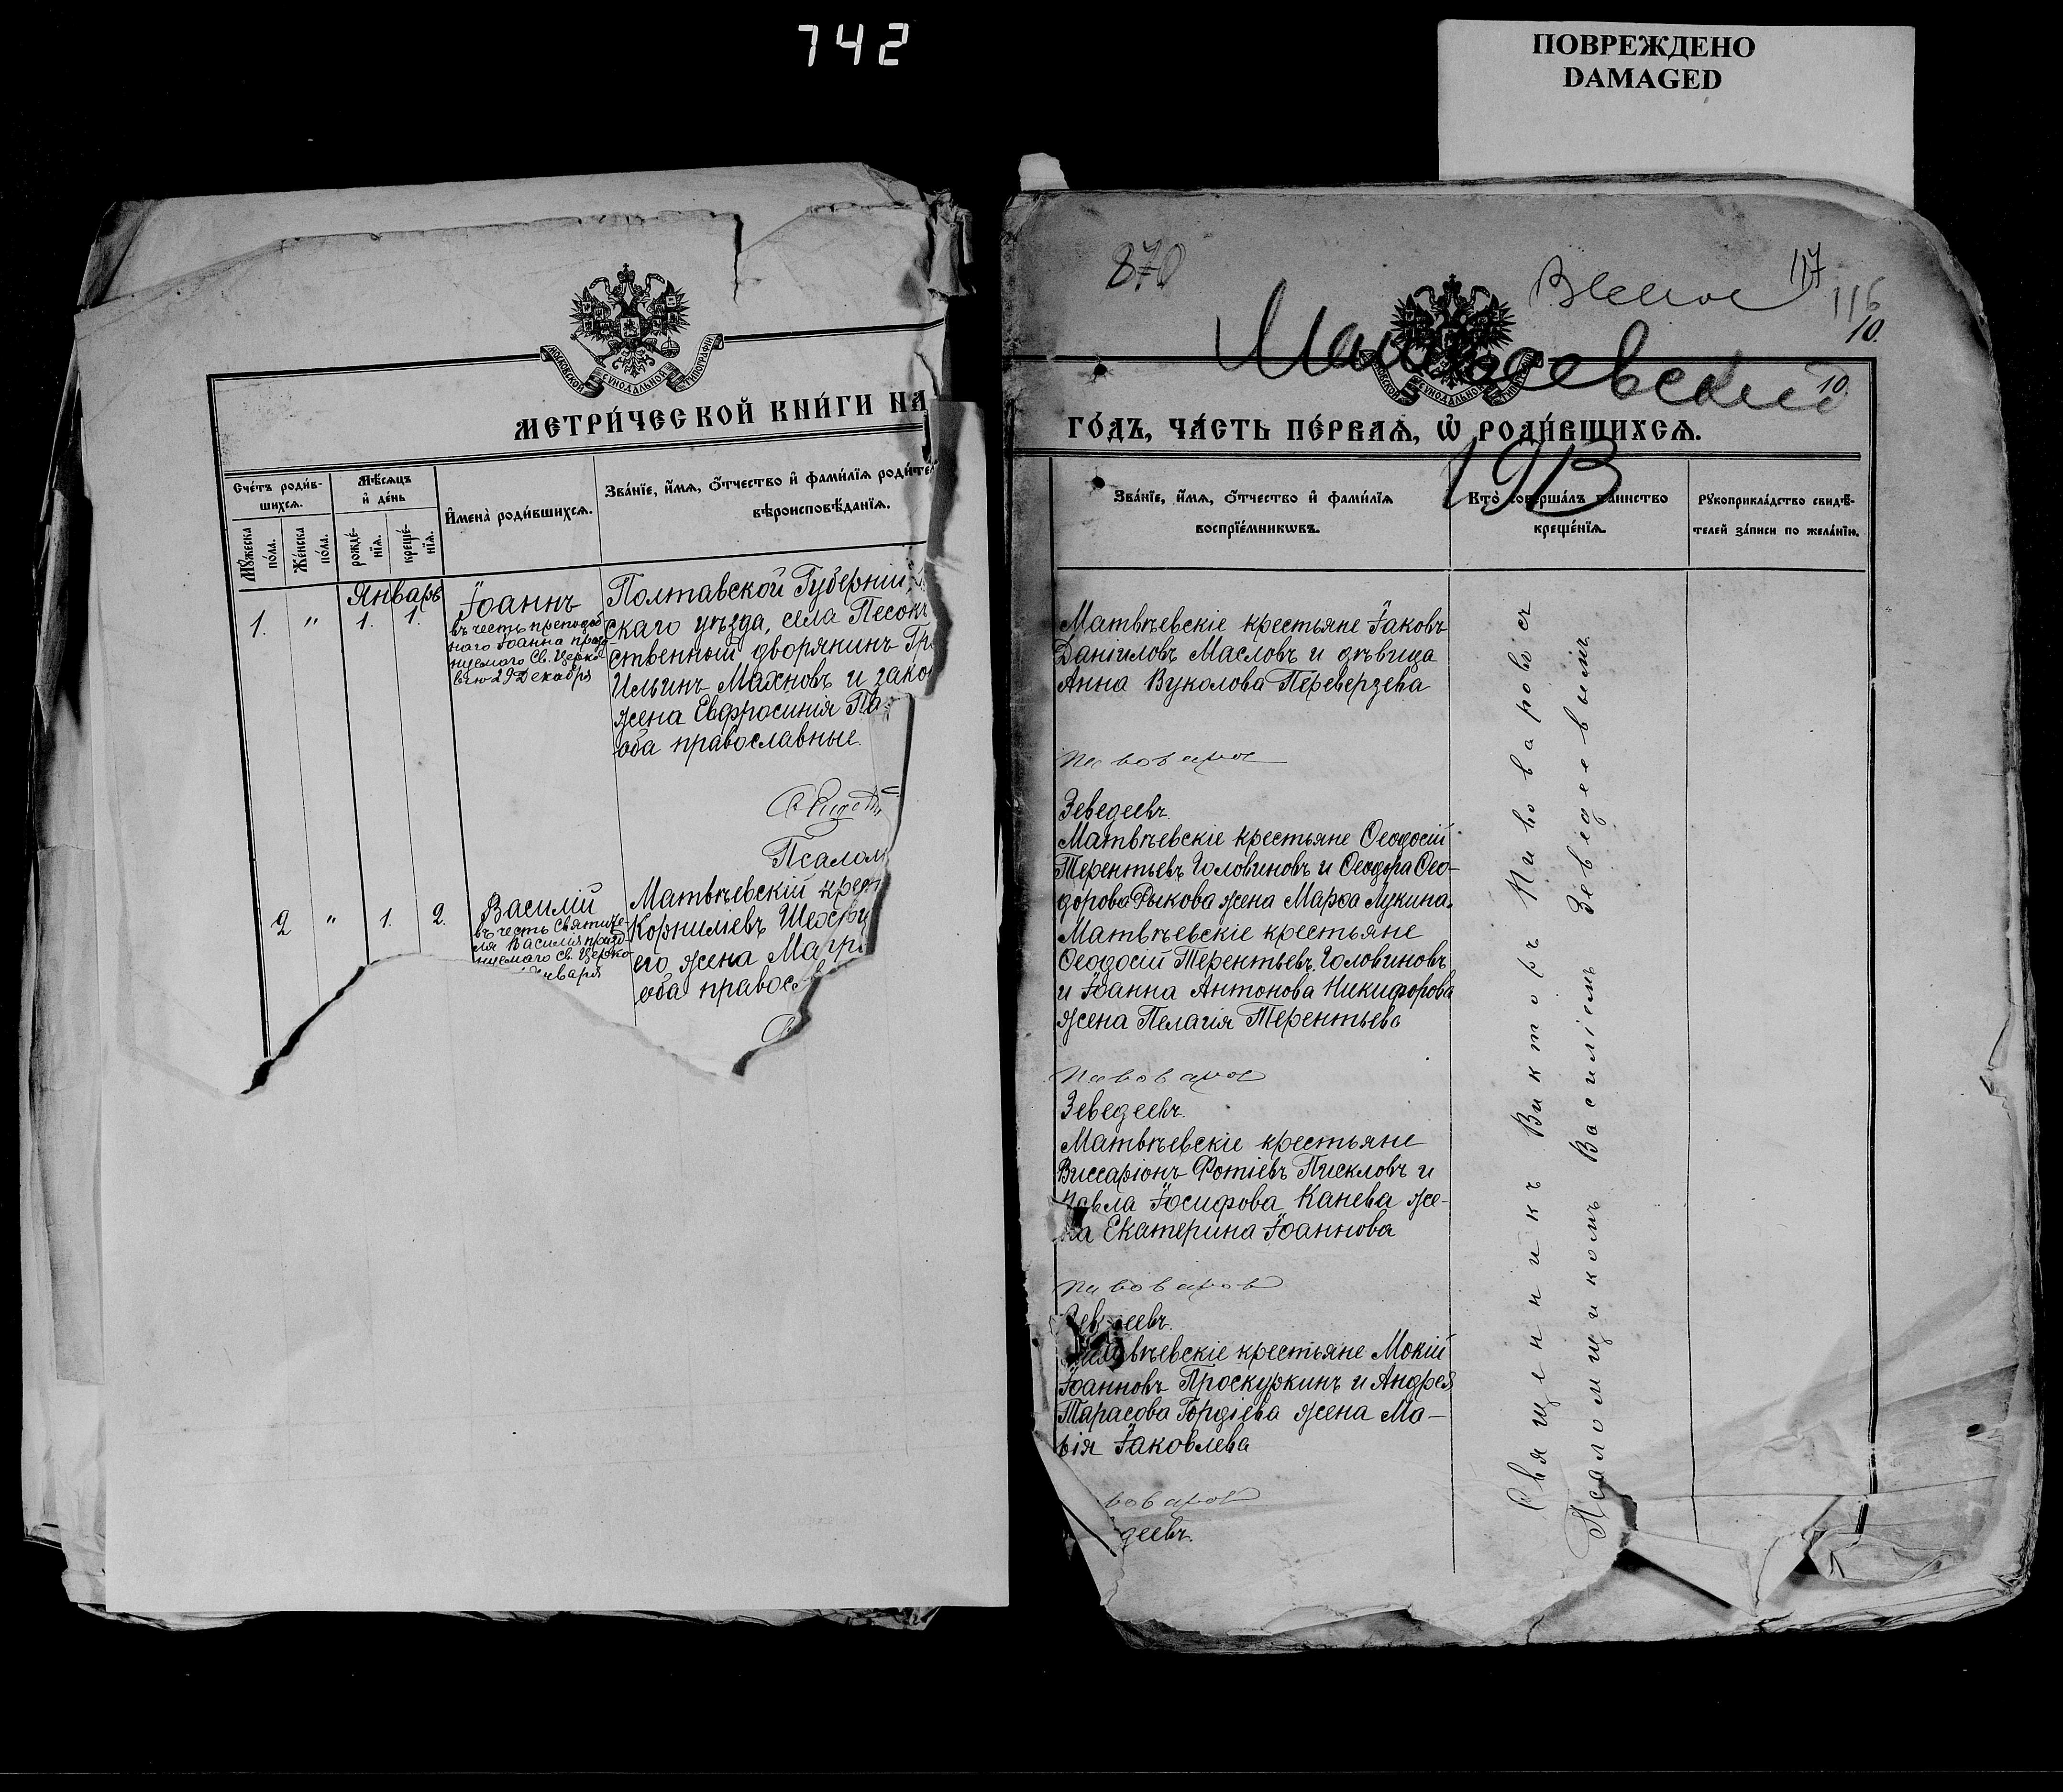 742
ПОВРЕЖДЕНО
DAMAGED
МОСКОВСКОЙ СУНОДАЛЬНОЙ ТИПОГРАФІИ
МЕТРИ́ЧЕСКОЙ КНИ́ГИ НА
Сче́тъ роди́в-
шихсѧ.
Мѣ́сѧцъ
и҆ де́нь
Мꙋ́жеска
по́ла.
Же́нска
по́ла.
рожде́-
нїѧ.
креще́-
нїѧ.
И҆мена̀ роди́вшихсѧ.
Зва́нїе, и҆́мѧ, ѻ҆́тчество и҆ фами́лїѧ роди́те
вѣроисповѣ́данїѧ.
Январь
1. " 1. 1.
Іоаннъ
въ честь преподоб
наго Іоанна празд
нуемаго Св. Церко
вію 29 Декабря
Полтавской Губерніи,
скаго уѣзда, села Песон
ственный дворянинъ Гр
Ильинъ Махновъ и зако
жена Евфросинія Па
оба православные.
Псалом
2 " 1. 2.
Василій
въ честь Святите-
ля Василія празд
нуемаго Св. Церко
января
Матвѣевскій крест
Корниліевъ
его жена Матр
оба правосл
870
117
116
10.
10.
1913
ГО́ДЪ, ЧА́СТЬ ПЕ́РВАѦ, Ѽ РОДИ́ВШИХСѦ.
Зва́нїе, и҆́мѧ, ѻ҆́тчество и҆ фами́лїѧ
воспрїе́мникѡвъ.
Кто̀ соверша́лъ та́инство
креще́нїѧ.
Рꙋкоприкла́дство свидѣ́-
телей за́писи по жела́нїю.
Матвѣевскіе крестьяне Іаковъ
Даніиловъ Масловъ и дѣвица
Анна Вуколова Переверзева
Пивоваров
Зеведеевъ.
Матвѣевскіе крестьяне Ѳеодосій
Терентьевъ Головиновъ и Ѳеодора Ѳео-
дорова Рыкова жена Марѳа Лукина.
Матвѣевскіе крестьяне
Ѳеодосій Терентьевъ Головиновъ
и Іоанна Антонова Никифорова
жена Пелагія Терентьева
Пивоваров
Зеведеевъ.
Матвѣевскіе крестьяне
Виссаріонъ Фотіевъ Пискловъ и
Павла Іосифова Канева же-
на Екатерина Іоаннова
Пивоваров
Зеведеевъ.
Матвѣевскіе крестьяне Мокій
Іоанновъ Проскуркинъ и Андрея
Тарасова Гордіева жена Ма-
рія Іаковлева
воваров
деевъ.
Священникъ Викторъ Пивоваровъ съ
Псаломщикомъ Василіемъ Зеведеевымъ